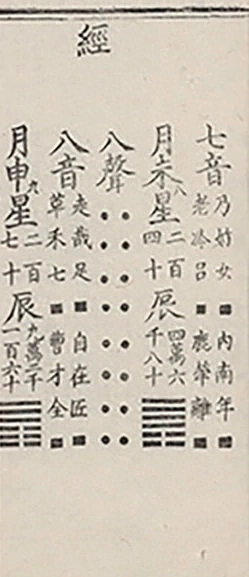 經
七音
乃妳女■內南年■
老冷呂■鹿犖離■
月未八星二百四十辰四萬六千八十
八聲
●●●●●●●●
●●●●●●●●
八音
走哉足■自在匠■
草采七■曹才全■
月申九星二百七十辰九萬二千一百六十